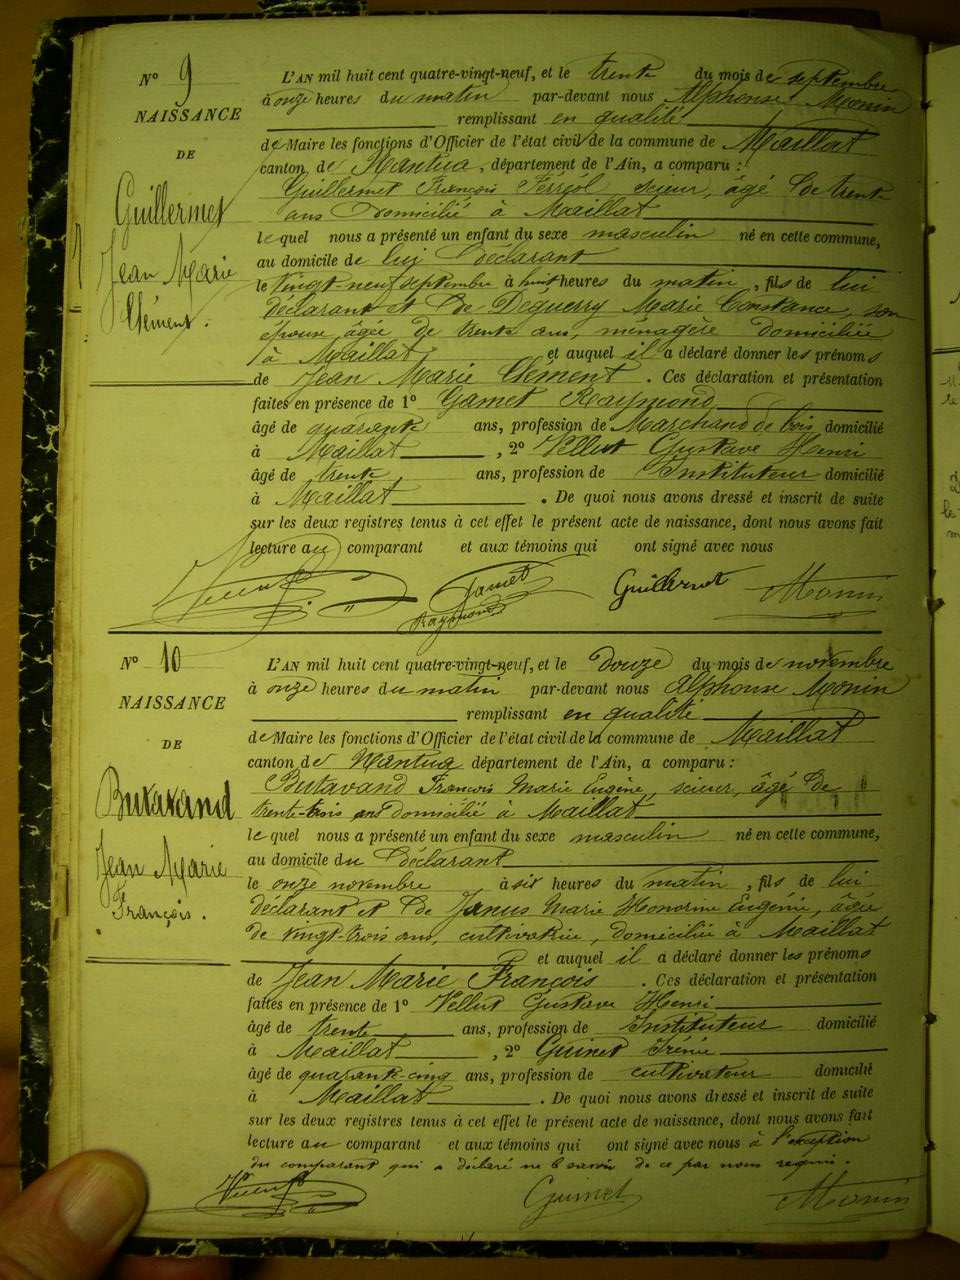 N° 9
NAISSANCE
DE
Guillermet
Jean Marie
Clément.
L'AN mil huit cent quatre-vingt-neuf, et le trente du mois de septembre
à onze heures du matin par-devant nous Alphonse Monin
remplissant en qualité
de Maire les fonctions d'Officier de l'état civil de la commune de Maillat
canton de Nantua, département de l'Ain, a comparu :
Guillermet François Ferréol scieur, âgé de trente
ans Domicilié à Maillat
lequel nous a présenté un enfant du sexe masculin né en cette commune,
au domicile de lui déclarant
le vingt-neuf septembre à huit heures du matin, fils de lui
déclarant et de Deguerry Marie Constance, son
épouse âgée de trente ans, ménagère domiciliée
à Maillat et auquel il a déclaré donner les prénoms
de Jean Marie Clément. Ces déclaration et présentation
faites en présence de 1° Gamet Raymond
âgé de quarante ans, profession de Marchand de bois domicilié
à Maillat, 2° Vellut Gustave Henri
âgé de trente ans, profession de Instituteur domicilié
à Maillat. De quoi nous avons dressé et inscrit de suite
sur les deux registres tenus à cet effet le présent acte de naissance, dont nous avons fait
lecture au comparant et aux témoins qui ont signé avec nous
Gamet Guillermet Monin
Raymond
N° 10
NAISSANCE
DE
Butavand
Jean Marie
François.
L'AN mil huit cent quatre-vingt-neuf, et le Douze du mois de novembre
à onze heures du matin par-devant nous Alphonse Monin
remplissant en qualité
de Maire les fonctions d'Officier de l'état civil de la commune de Maillat
canton de Nantua département de l'Ain, a comparu :
Butavand François Marie Eugène, scieur, âgé de
trente-trois ans domicilié à Maillat
lequel nous a présenté un enfant du sexe masculin né en cette commune,
au domicile du déclarant
le onze novembre à six heures du matin, fils de lui
déclarant et de Janus Marie Honorine Eugénie, âgée
de vingt-trois ans, cultivatrice, domiciliée à Maillat
et auquel il a déclaré donner les prénoms
de Jean Marie François. Ces déclaration et présentation
faites en présence de 1° Vellut Gustave Henri
âgé de trente ans, profession de Instituteur domicilié
à Maillat, 2° Guinet Irénée
âgé de quarante-cinq ans, profession de cultivateur domicilié
à Maillat. De quoi nous avons dressé et inscrit de suite
sur les deux registres tenus à cet effet le présent acte de naissance, dont nous avons fait
lecture au comparant et aux témoins qui ont signé avec nous à l'exception
du comparant qui a déclaré ne le savoir de ce par nous requis.
Guinet Monin